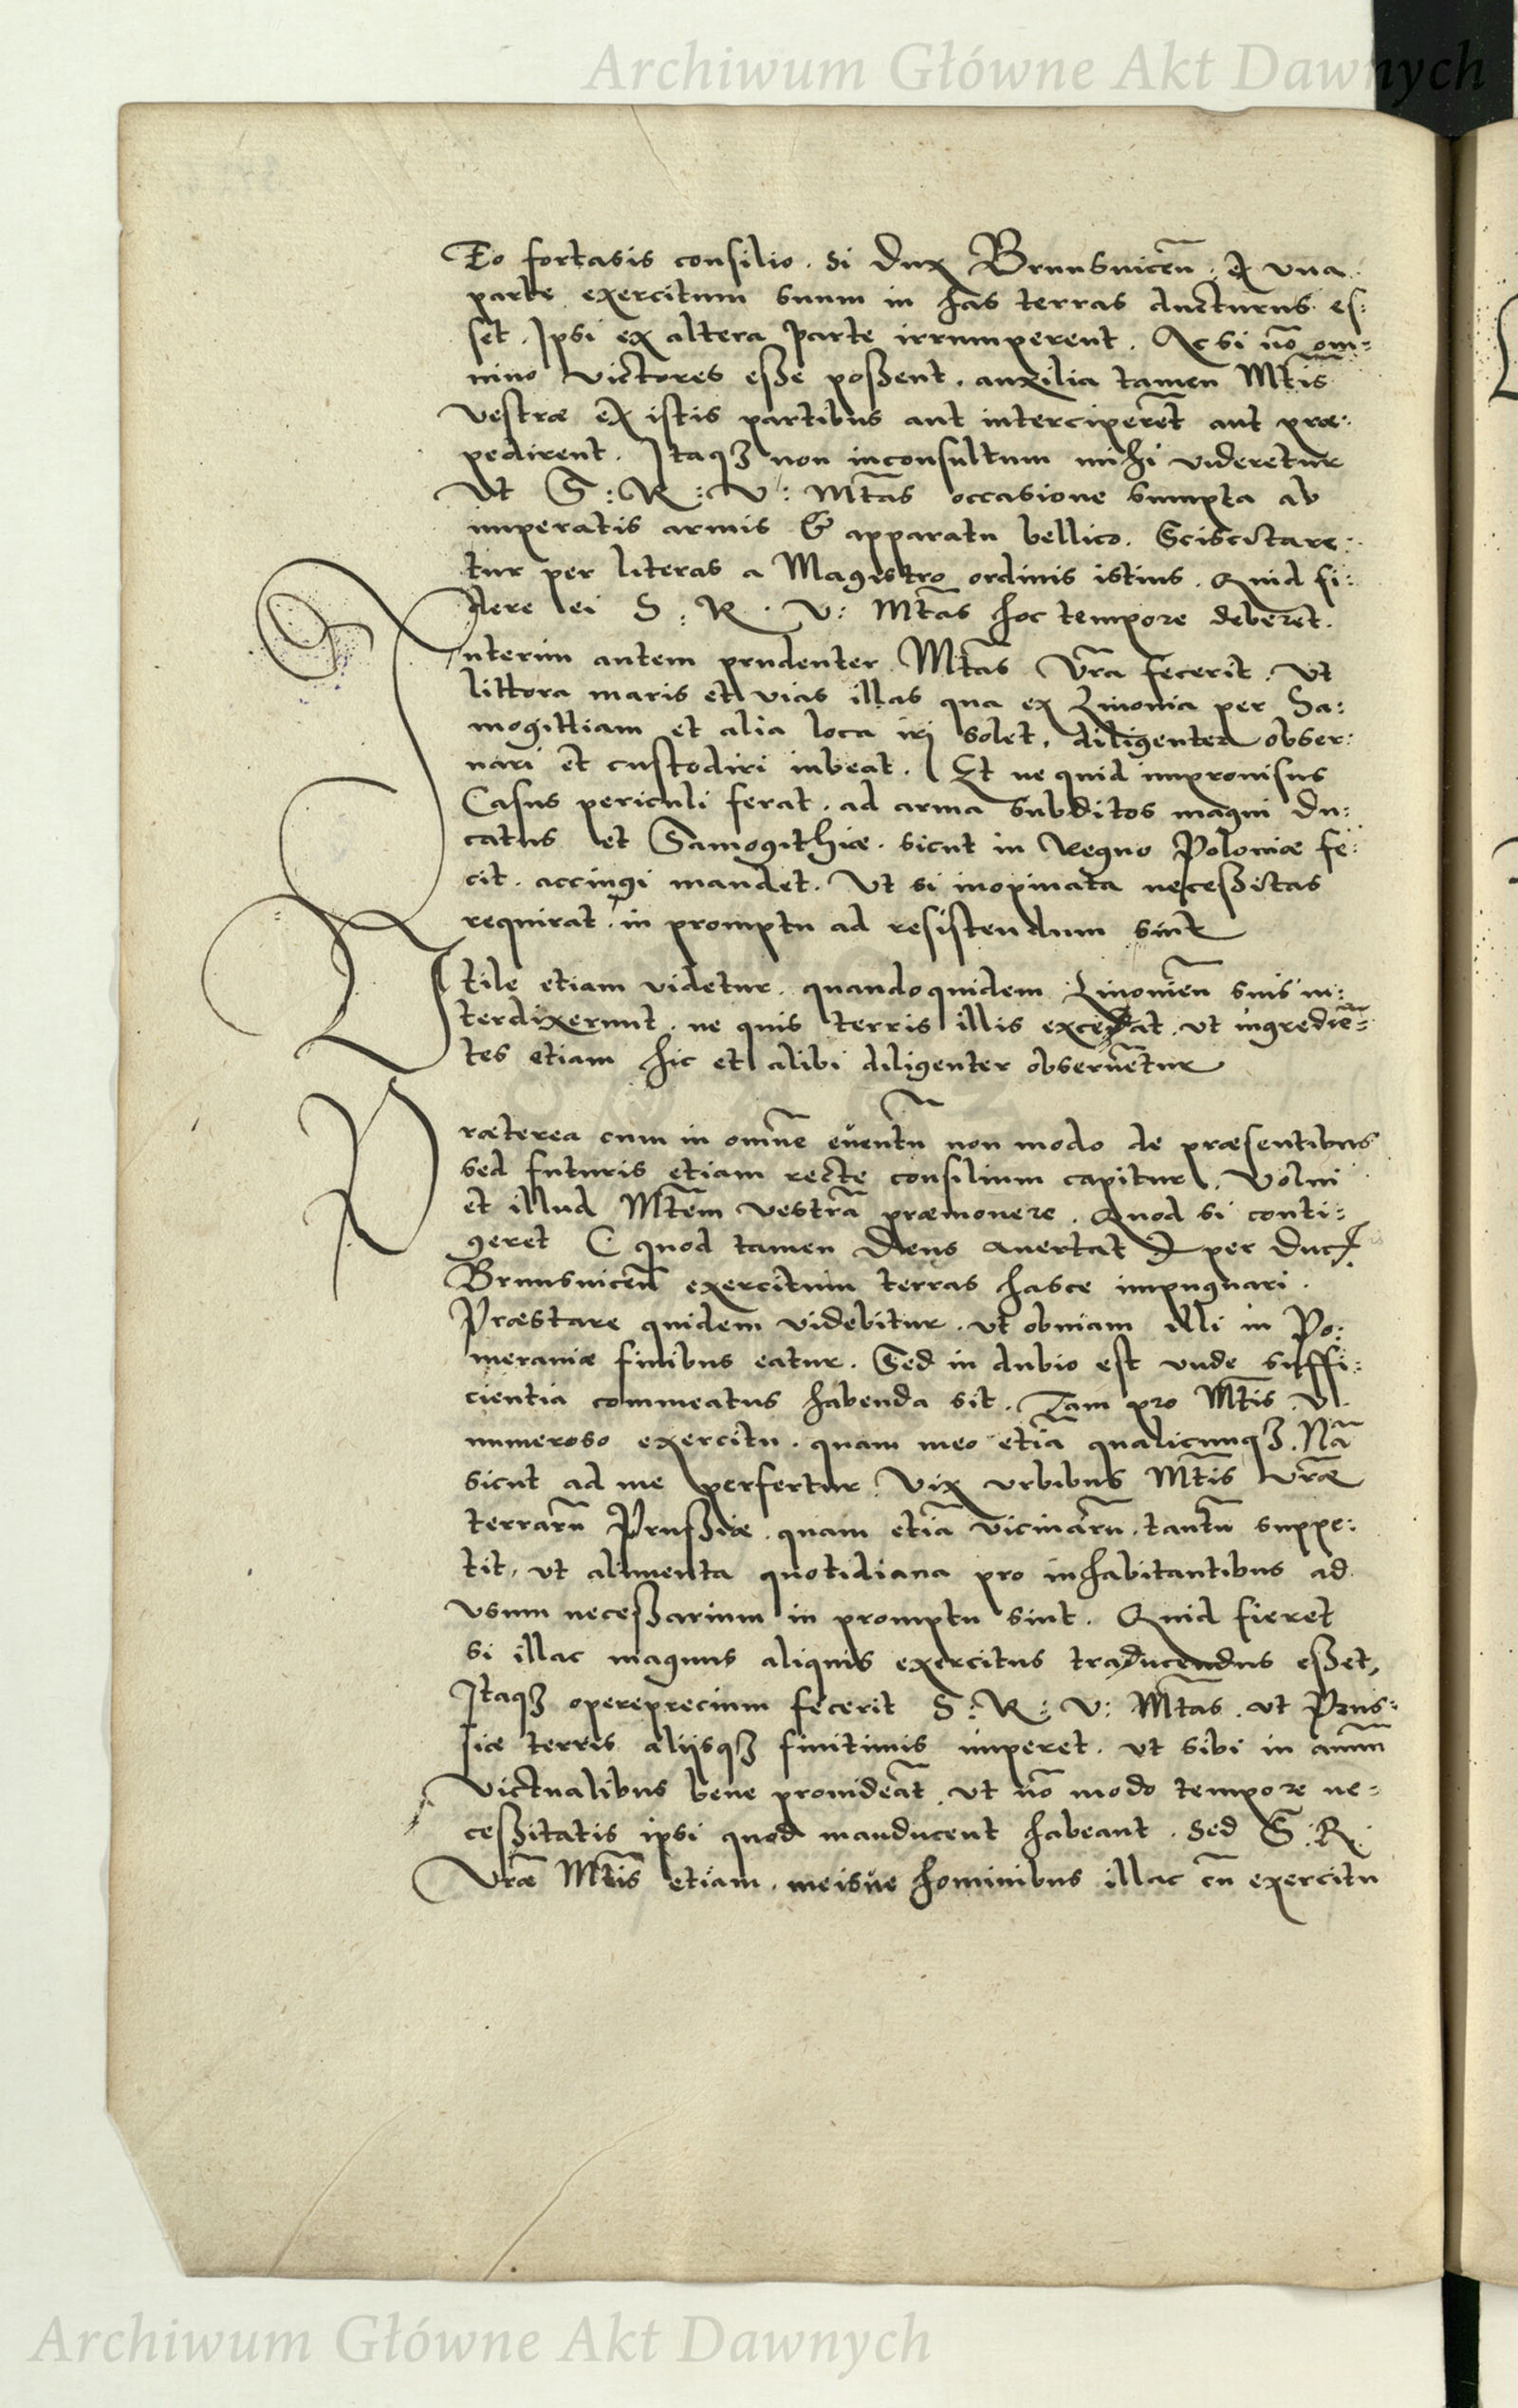 Archiwum Główne Akt Dawnych
Eo fortasis consilio. Si Dux Brunsuiceñ. Ex vna
parte exercitum suum in has terras ducturus es:
set. Ipsi ex altera parte irrumperent. Ac si nō om:
nino victores eße poßent, auxilia tamen Mtis
vestræ ex istis partibus aut interciperēt aut præ:
pedirent. Itaqȝ non inconsultum mihi videretur
Vt S: R: V: Mtas occasione sumpta ab
imperatis armis & apparatu bellico. Sciscitare:
tur per literas a Magistro ordinis istius. Quid fi:
dere ei S: R. V: Mtas hoc tempore deberet.
Interim autem prudenter Mtas Vrā fecerit. Vt
littora maris et vias illas qua ex Liuonia per Sa:
mogittiam et alia loca iri solet, diligenter obser:
uari et custodiri iubeat. Et ne quid improuisus
Casus periculi ferat. ad arma subditos magni Du:
catus et Samogithiæ. sicut in Regno Poloniæ fe:
cit. accingi mandet. Vt si inopinata neceßitas
requirat. in promptu ad resistendum sint
Vtile etiam videtur. quandoquidem Liuonieñ suis in:
terdixerunt. ne quis terris illis excedat. vt ingrediē:
tes etiam hic et alibi diligenter obseruētur
Præterea cum in omnē euentū non modo de præsentibus
sed futuris etiam recte consilium capitur. Volui
et illud Mtem vestrā præmonere. Quod si conti:
geret ( quod tamen Deus auertat ) per Duc
Brunsuiceñ exercitum terras hasce impugnari.
Præstare quidem videbitur. vt obuiam illi in Po:
meraniæ finibus eatur. Sed in dubio est vnde suffi:
cientia commeatus habenda sit. Tam pro Mtis. V.
numeroso exercitu. quam meo etiā qualicunqȝ. Nā
sicut ad me perfertur. Vix vrbibus Mtis vræ
terrarū Prußiæ. quam etiā vicinarū. tantū suppe:
tit, vt alimenta quotidiana pro inhabitantibus ad
vsum neceßarium in promptu sint. Quid fieret
si illac magnus aliquis exercitus traducendus eßet,
Itaqȝ opereprecium fecerit S: R: V: Mtas. vt Prus:
siæ terris aliisqȝ finitimis imperet. vt sibi in annū
Victualibus bene prouideāt. vt nō modo tempore ne:
ceßitatis ipsi quod manducent habeant. Sed S: R.
Vræ Mtis etiam. meisue hominibus illac cū exercitu
Archiwum Główne Akt Dawnych